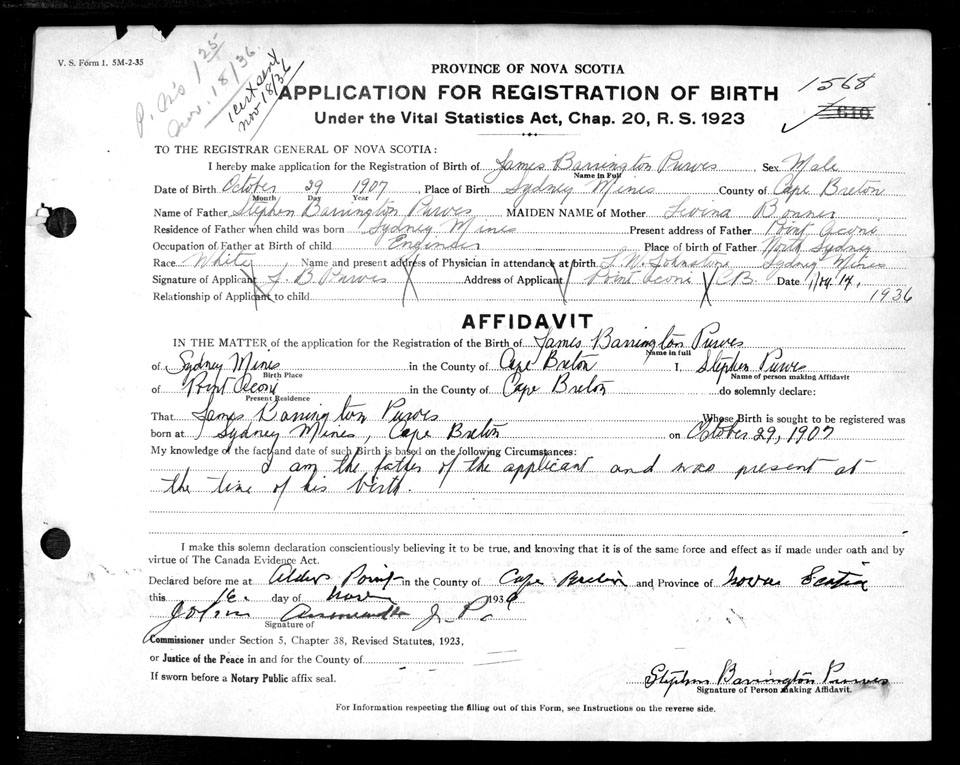 V. S. Form 1. 5M-2-35
P. No's 1 25
Nov. 18/36.
1 cert sent
nov 18/36
PROVINCE OF NOVA SCOTIA
APPLICATION FOR REGISTRATION OF BIRTH
1568
610
Under the Vital Statistics Act, Chap. 20, R. S. 1923
TO THE REGISTRAR GENERAL OF NOVA SCOTIA:
I hereby make application for the Registration of Birth of James Barrington Purves Sex Male
Name in Full
Date of Birth October 29 1907, Place of Birth Sydney Mines County of Cape Breton
Month Day Year
Name of Father Stephen Barrington Purves MAIDEN NAME of Mother Levina Bonner
Residence of Father when child was born Sydney Mines Present address of Father Point Aconi
Occupation of Father at Birth of child Engineer Place of birth of Father North Sydney
Race White Name and present address of Physician in attendance at birth L. W. Johnstone Sydney Mines
Signature of Applicant J. B. Purves Address of Applicant Point Aconi C.B. Date 14,
Relationship of Applicant to child 1936
AFFIDAVIT
IN THE MATTER of the application for the Registration of the Birth of James Barrington Purves
Name in full
of Sydney Mines in the County of Cape Breton I, Stephen Purves
Birth Place Name of person making Affidavit
of Point Aconi in the County of Cape Breton do solemnly declare:
Present Residence
That James Barrington Purves Whose Birth is sought to be registered was
born at Sydney Mines, Cape Breton on October 29, 1907
My knowledge of the fact and date of such Birth is based on the following Circumstances:
I am the father of the applicant and was present at
the time of his birth.
I make this solemn declaration conscientiously believing it to be true, and knowing that it is of the same force and effect as if made under oath and by
virtue of The Canada Evidence Act.
Declared before me at Alder Point in the County of Cape Breton and Province of Nova Scotia
this day of Nov 1936
J. P.
Signature of
Commissioner under Section 5, Chapter 38, Revised Statutes, 1923,
or Justice of the Peace in and for the County of
If sworn before a Notary Public affix seal.
Stephen Barrington Purves
Signature of Person making Affidavit.
For Information respecting the filling out of this Form, see Instructions on the reverse side.